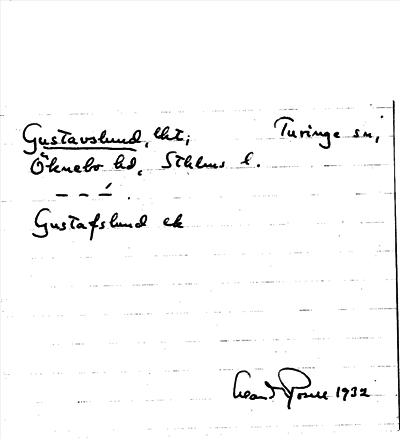 Gustavslund, lht; Turinge sn,
Öknebo hd, Sthlms l.
– – –́ .
Gustafslund ek
1932